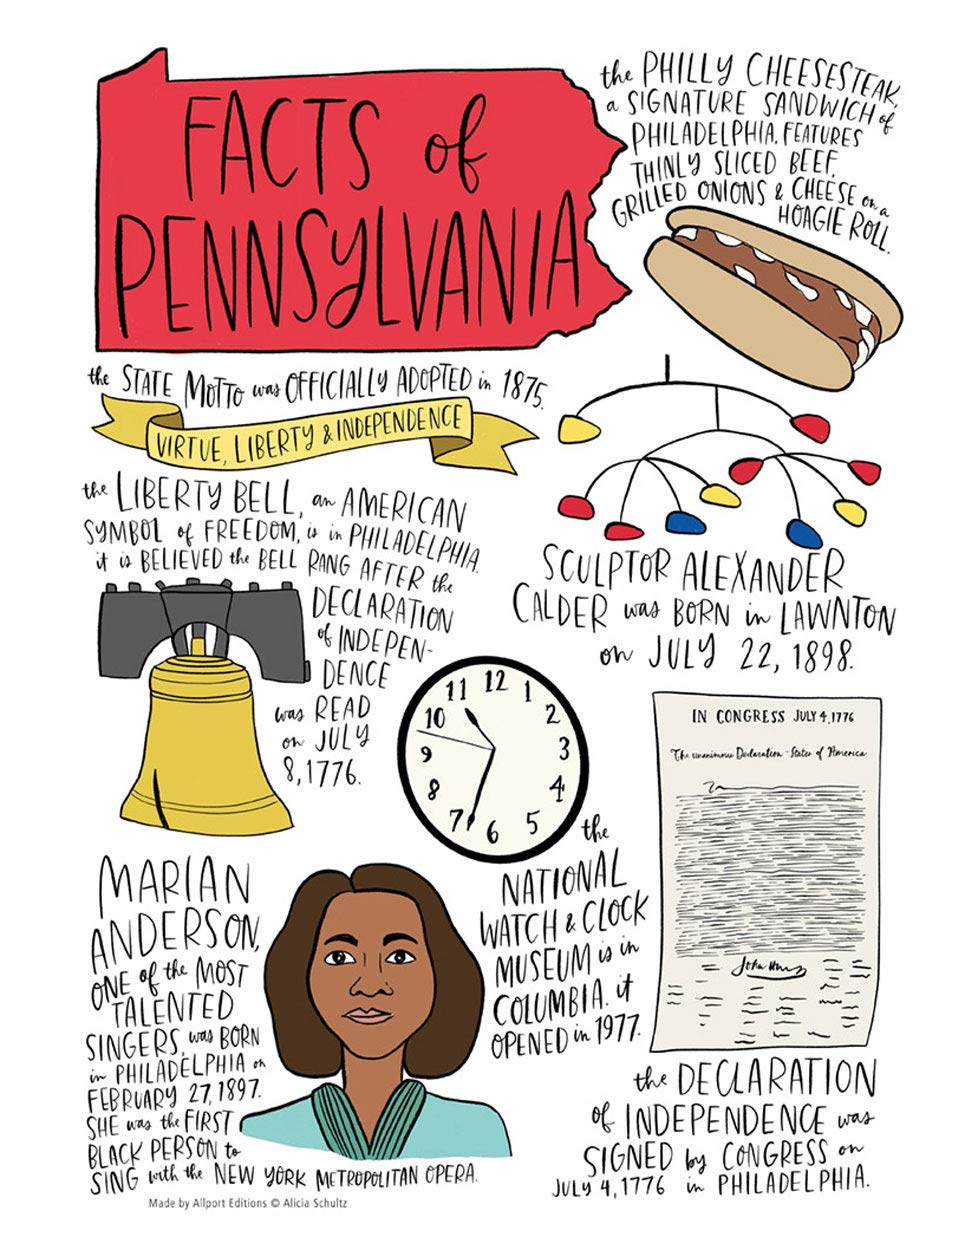 FACTS of
PENNSYLVANIA
the PHILLY CHEESESTEAK,
a SIGNATURE SANDWICH of
PHILADELPHIA, FEATURES
THINLY SLICED BEEF,
GRILLED ONIONS & CHEESE on a
HOAGIE ROLL.
the STATE MOTTO was OFFICIALLY ADOPTED in 1875.
VIRTUE, LIBERTY & INDEPENDENCE
the LIBERTY BELL, an AMERICAN
SYMBOL of FREEDOM, is in PHILADELPHIA.
it is BELIEVED the BELL RANG AFTER the
DECLARATION
of INDEPEN-
DENCE
was READ
on JULY
8, 1776.
SCULPTOR ALEXANDER
CALDER was BORN in LAWNTON
on JULY 22, 1898.
12
11 1
10 2
9 3
8 4
7 5
6
the
NATIONAL
WATCH & CLOCK
MUSEUM is in
COLUMBIA. it
OPENED in 1977.
IN CONGRESS JULY 4, 1776
The unanimous Declaration - States of America
John Han
the DECLARATION
of INDEPENDENCE was
SIGNED by CONGRESS on
JULY 4, 1776 in PHILADELPHIA.
MARIAN
ANDERSON,
ONE of the MOST
TALENTED
SINGERS, was BORN
in PHILADELPHIA on
FEBRUARY 27, 1897.
SHE was the FIRST
BLACK PERSON to
SING with the NEW YORK METROPOLITAN OPERA.
Made by Allport Editions © Alicia Schultz